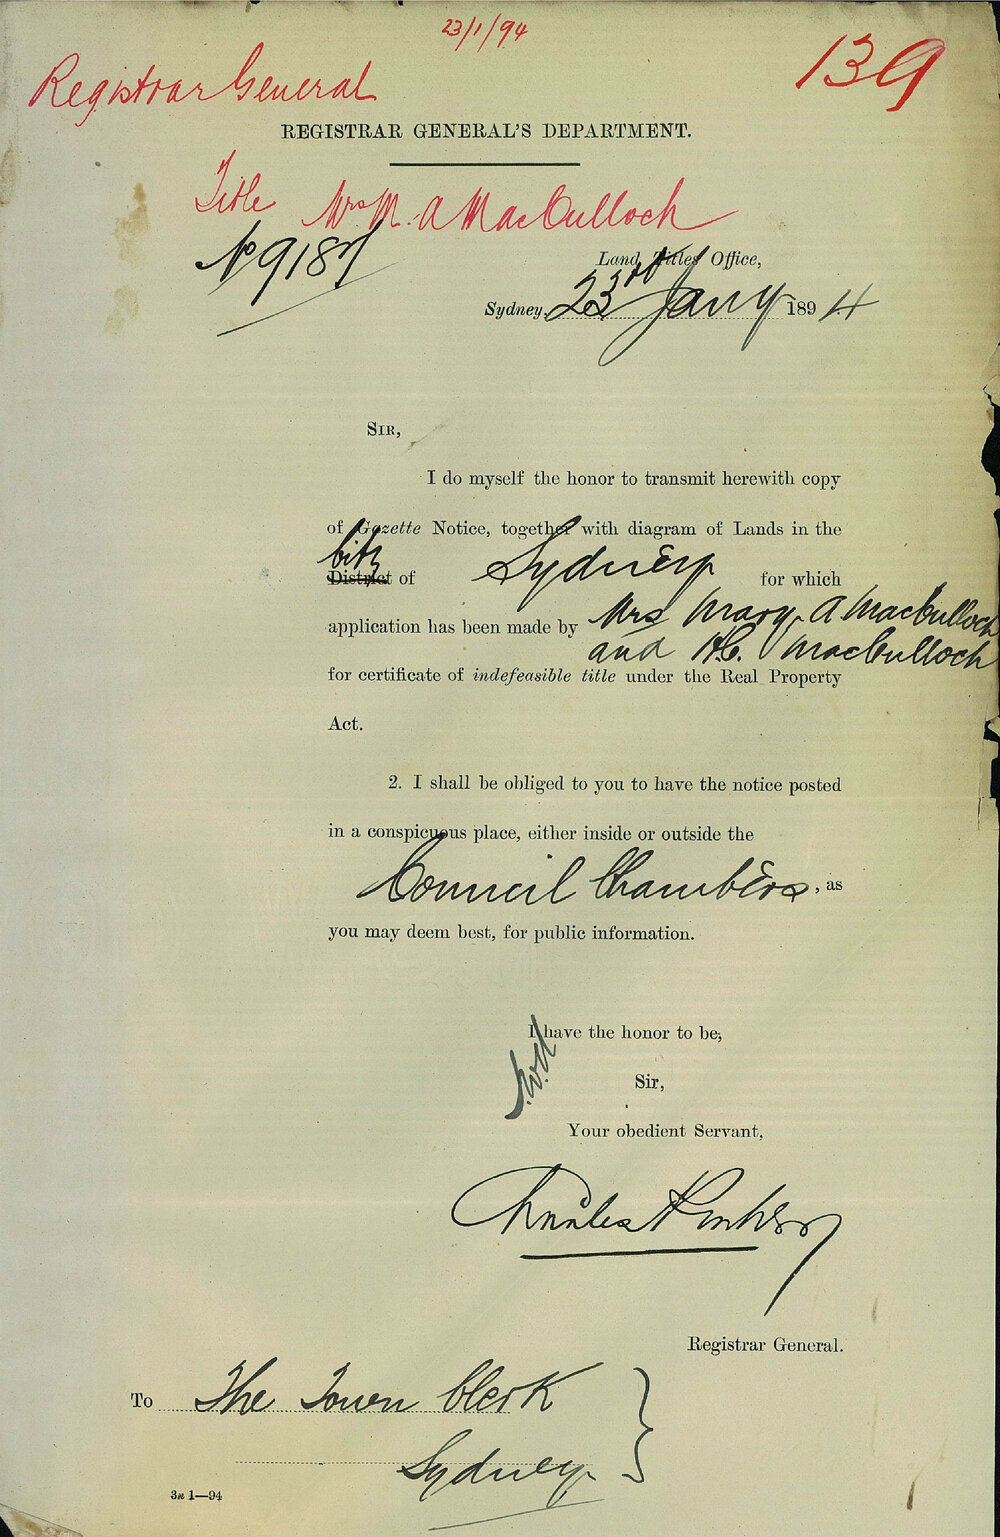 23/1/94
139
Registrar General
REGISTRAR GENERAL'S DEPARTMENT.
Title Mrs M. A MacCulloch
No 9187
Land Titles Office,
Sydney, 23rd Jany 1894
SIR,
I do myself the honor to transmit herewith copy
of Gazette Notice, together with diagram of Lands in the
City
District of Sydney for which
application has been made by Mrs Mary A MacCulloch
and H.C. MacCulloch
for certificate of indefeasible title under the Real Property
Act.
2. I shall be obliged to you to have the notice posted
in a conspicuous place, either inside or outside the
Council Chambers, as
you may deem best, for public information.
I have the honor to be,
Sir,
Your obedient Servant,
Charles
Registrar General.
To The Town Clerk
Sydney
3n 1—94